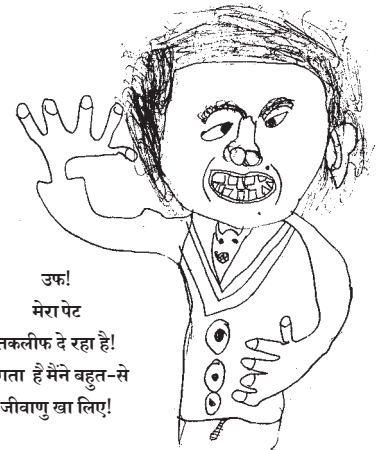 उफ!
मेरा पेट
तकलीफ दे रहा है!
है मैंने बहुत-से
जीवाणु खा लिए!